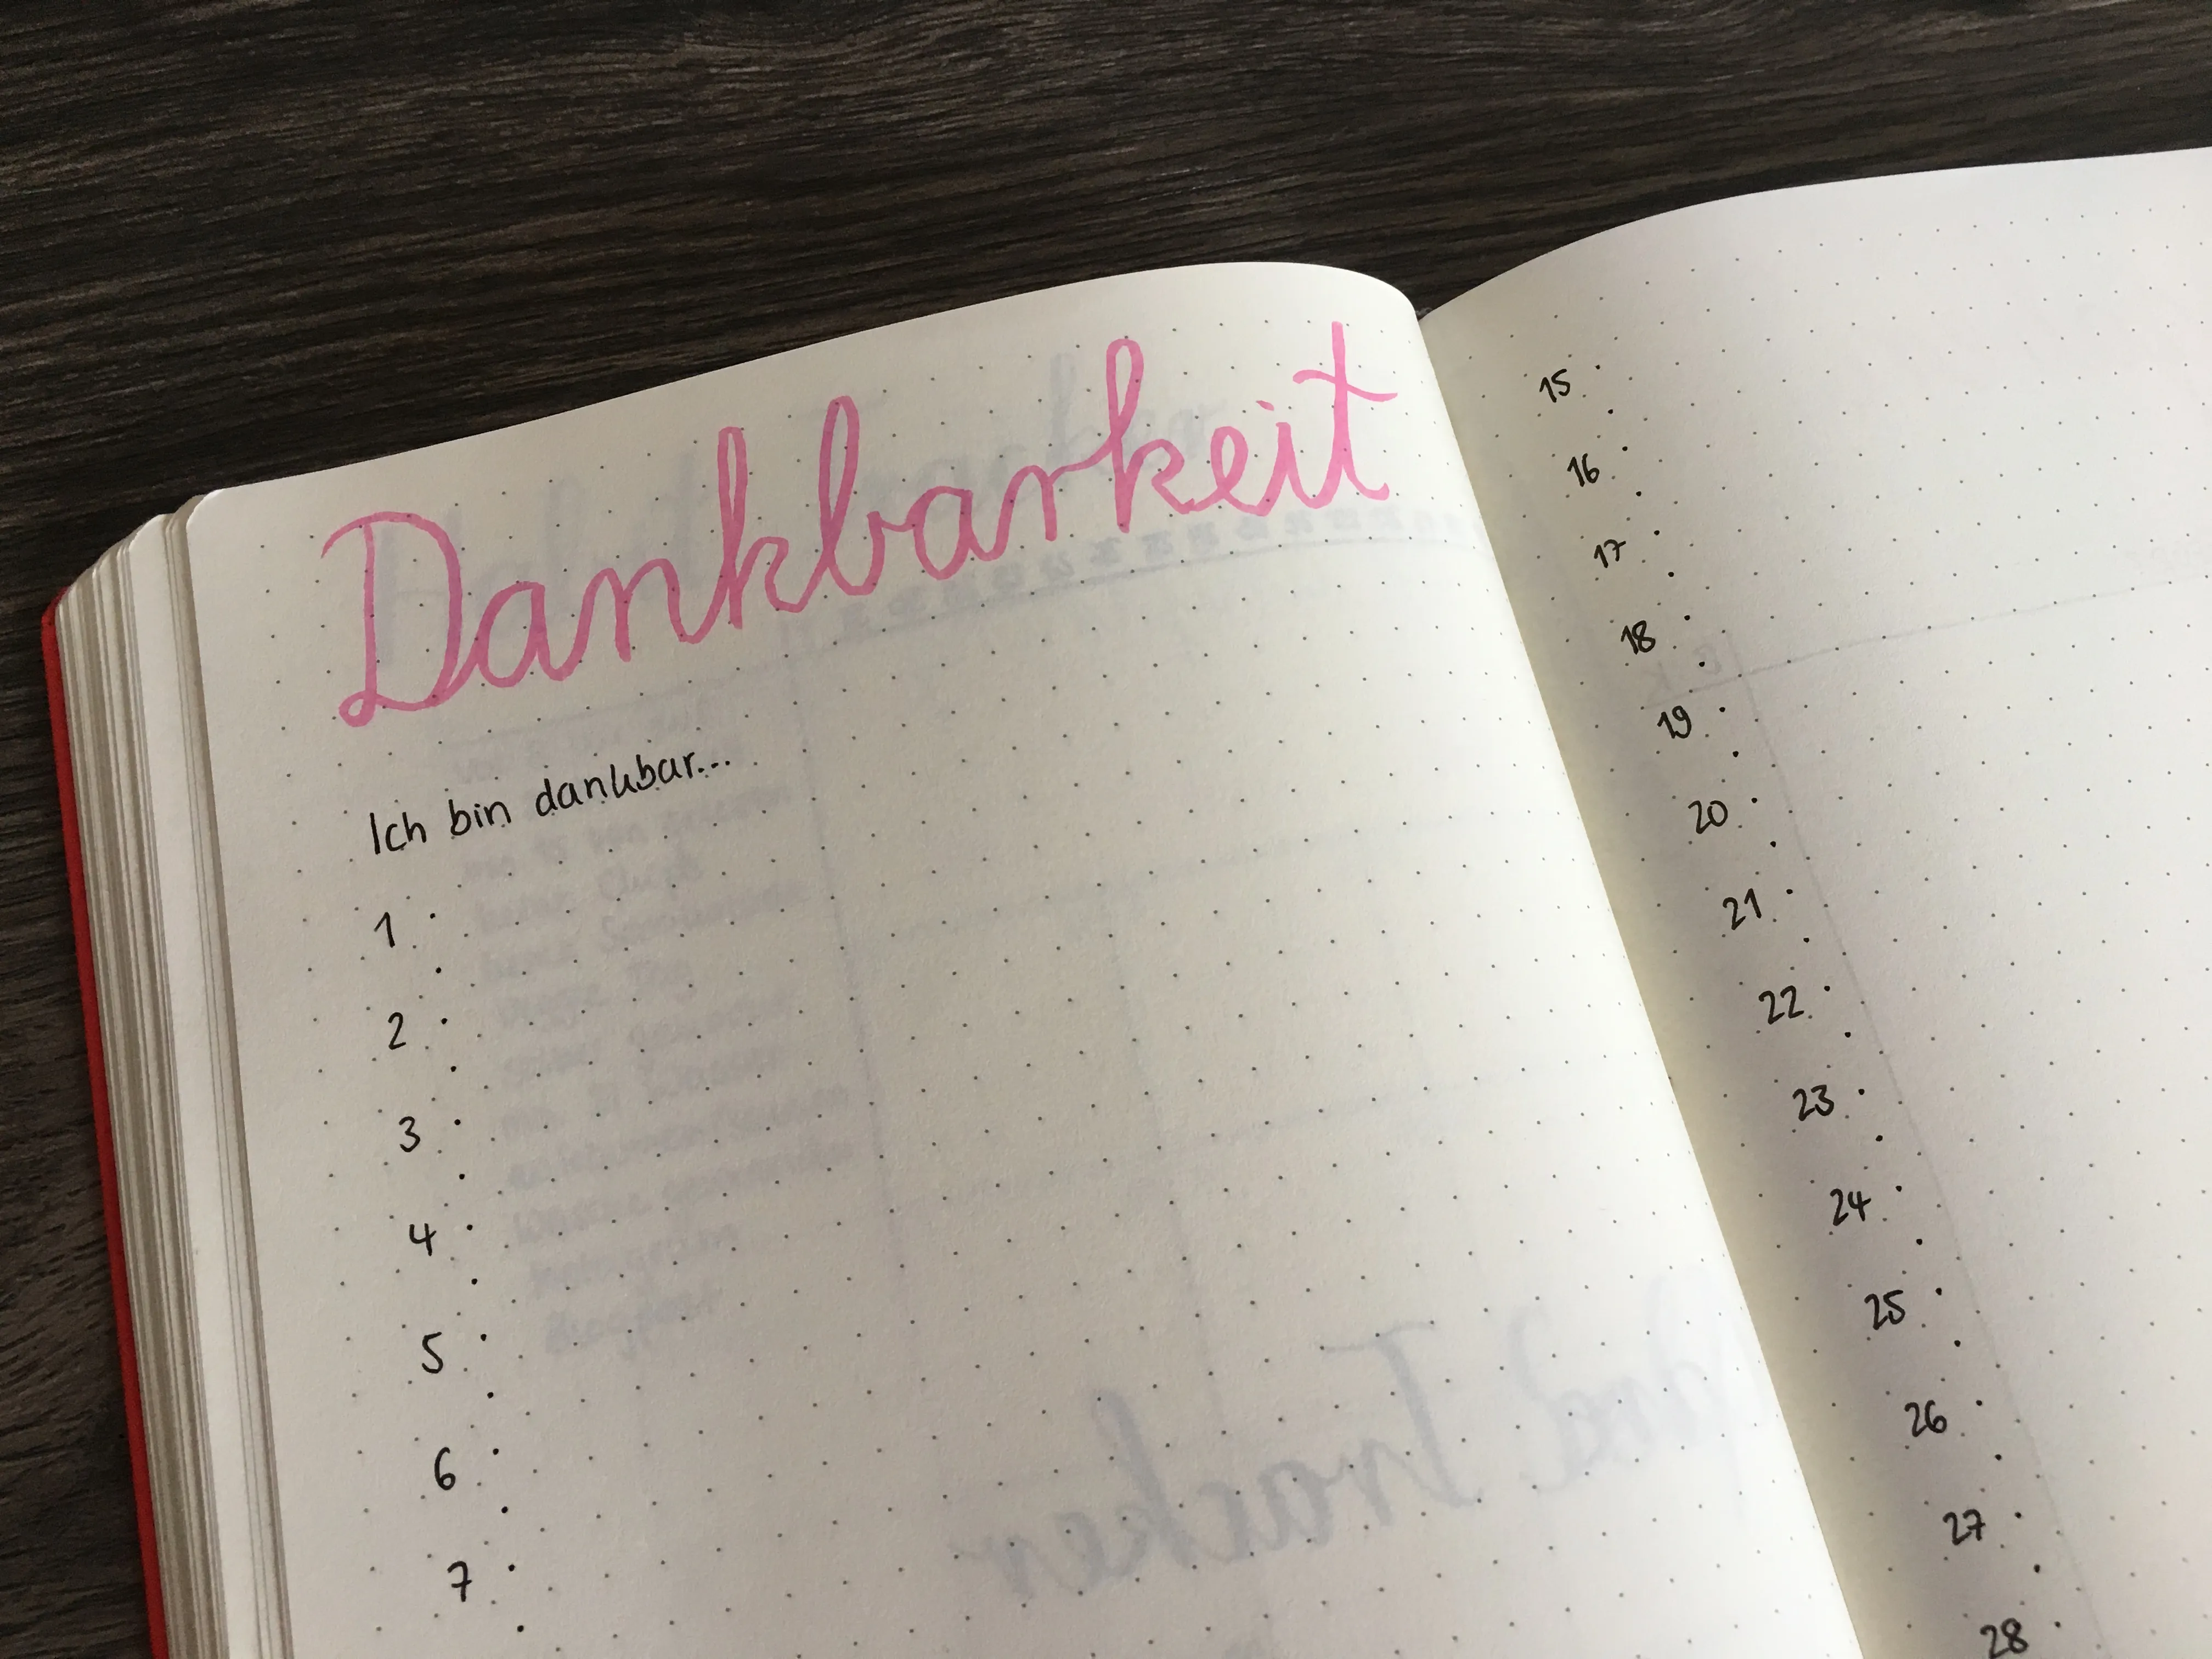 Dankbarkeit
Ich bin dankbar...
1
2
3
4
5
6
7
15
16
17
18
19
20
21
22
23
24
25
26
27
28
Tracker